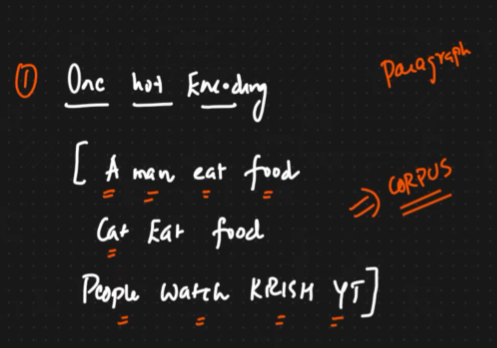 ① One hot Encoding
Paragraph
[ A man eat food
⇒ CORPUS
Cat Eat food
People watch KRISH YT ]